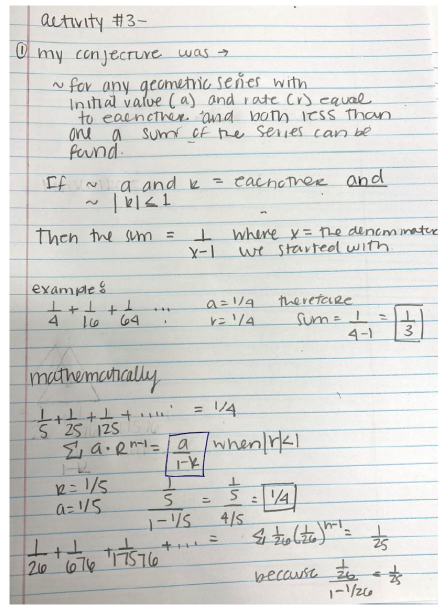 activity #3-
① my conjecture was →
~ for any geometric series with
initial value (a) and rate (r) equal
to eachother and both less than
one a sum of the series can be
found.
If ~ a and r = eachother and
~ |r| < 1
Then the sum = 1/x-1 where x = the denominator
we started with
example:
1/4 + 1/16 + 1/64 ... a = 1/4 therefore
r = 1/4 sum = 1/4-1 = 1/3
mathematically
1/5 + 1/25 + 1/125 + ..... = 1/4
Σ a · R^n-1 = a/1-r when |r|<1
R = 1/5
a = 1/5 1/5/1-1/5 = 1/5/4/5 = 1/4
1/26 + 1/676 + 1/17576 + ... = Σ 1/26 (1/26)^n-1 = 1/25
because 1/26/1-1/26 = 1/25